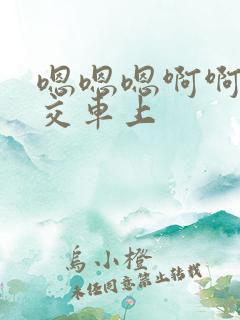 嗯嗯嗯啊啊
交车上
乌小橙
未经同意禁止转载